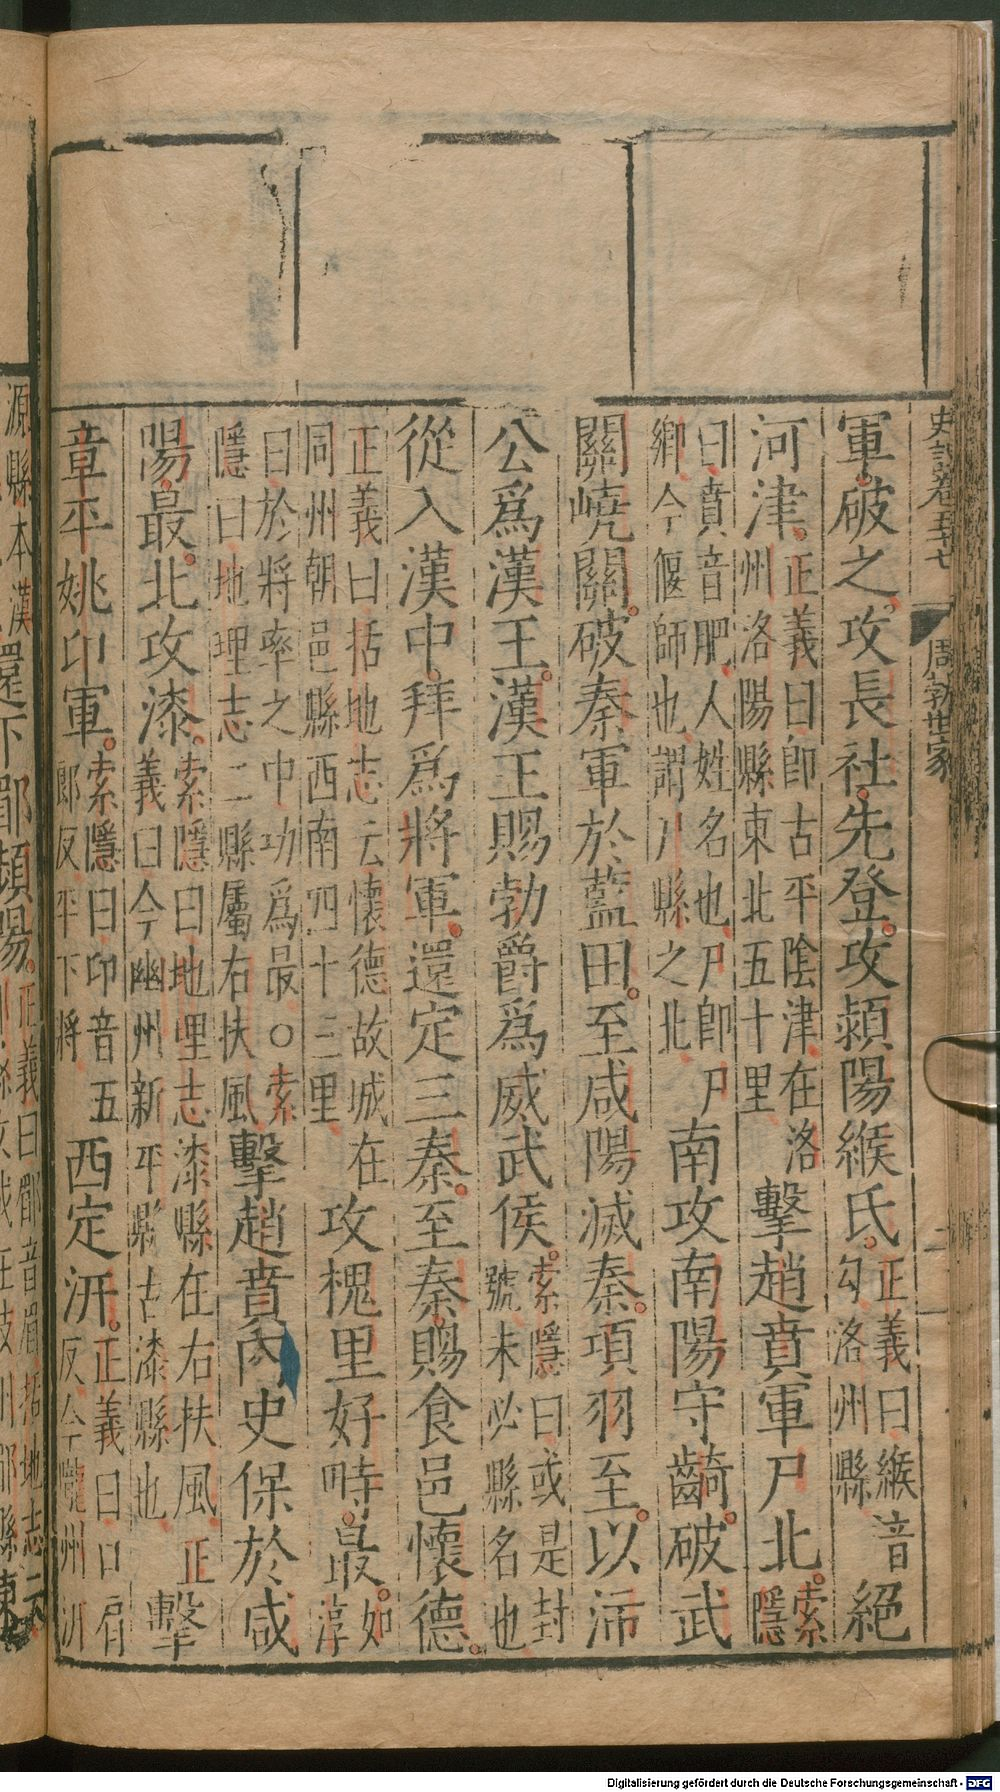 史記卷五十七 周勃世家 二
軍破之攻長社先登攻潁陽緱氏正義曰緱音勾洛州縣絕
河津正義曰卽古平陰津在洛州洛陽縣東北五十里擊趙賁軍尸北索隱
曰賁音肥人姓名也尸卽尸鄉今偃師也謂尸縣之北南攻南陽守齮破武
關嶢關破秦軍於藍田至咸陽滅秦項羽至以沛
公爲漢王漢王賜勃爵爲威武侯索隱曰或是封號未必縣名也
從入漢中拜爲將軍還定三秦至秦賜食邑懷德
正義曰括地志云懷德故城在同州朝邑縣西南四十三里攻槐里好畤最如淳
曰於將率之中功爲最○索隱曰地理志二縣屬右扶風擊趙賁內史保於咸
陽最北攻漆索隱曰地理志漆縣在右扶風正義曰今豳州新平縣古漆縣也擊
章平姚卬軍索隱曰卬音五郎反平下將西定汧正義曰口肩反今隴州汧
源縣本漢 還下郿頻陽正義曰郿音眉括地志云
Digitalisierung gefördert durch die Deutsche Forschungsgemeinschaft - DFG